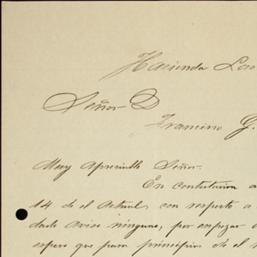 Hacienda Los
Señor D
Francisco G.
Muy Apreciable Señor.
En contestacion a
14 de el Actual, con respecto a
darle aviso ninguno, por empezar
espero que para principios de el